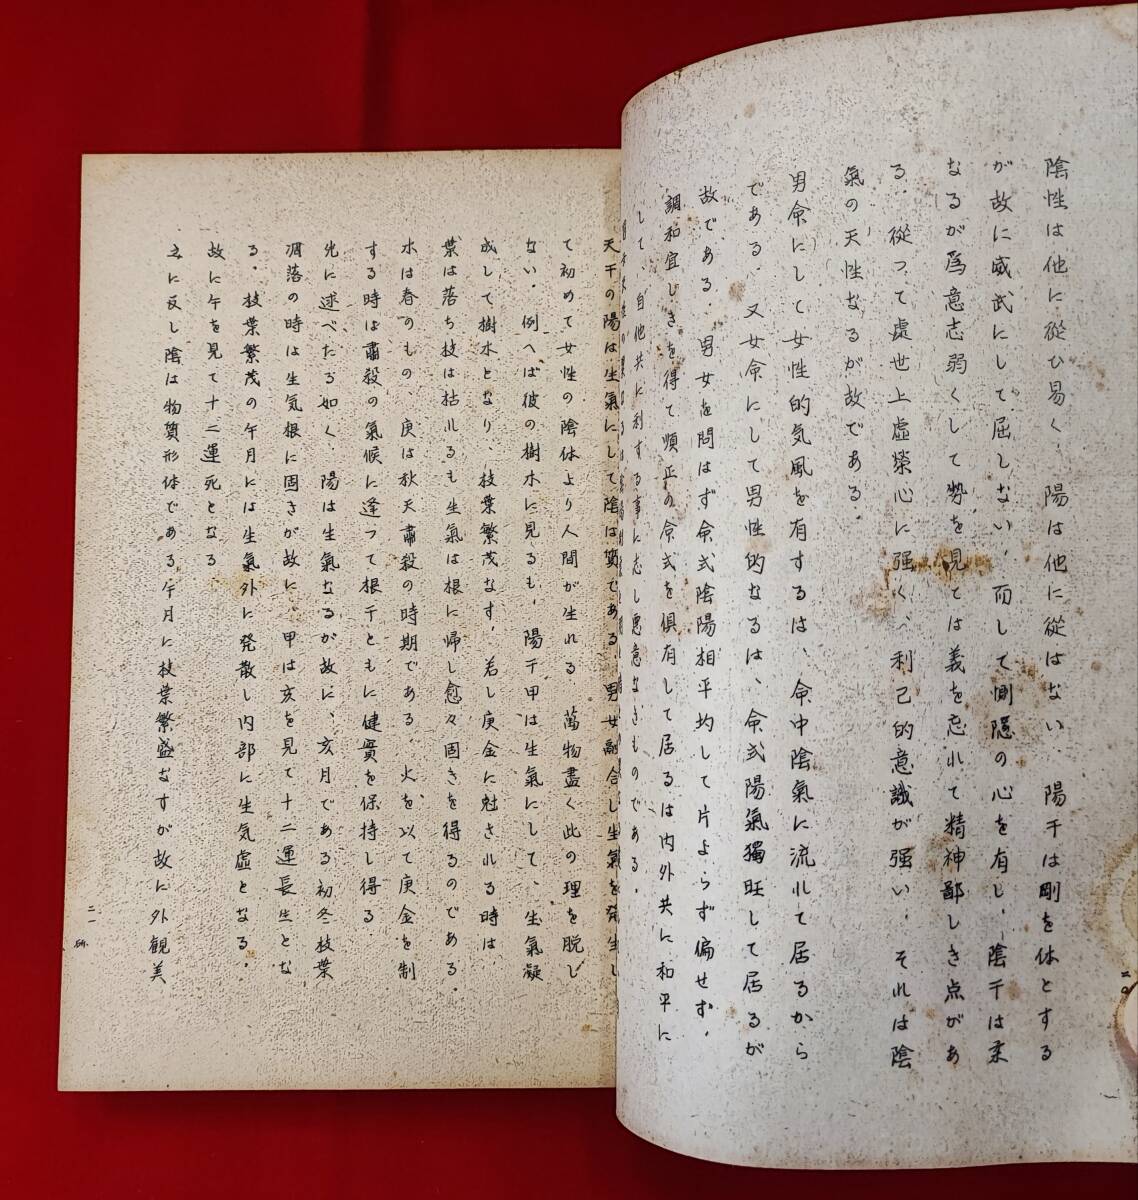 陰性は他に從ひ易く、陽は他に從はない、陽干は剛を体とする
が故に威武にして屈しない、而して惻隠の心を有し、陰干は柔
なるが爲意志弱くして勢を見ては義を忘れて精神鄙しき点があ
る、從つて處世上虚榮心に强く、利己的意識が强い、それは陰
氣の天性なるが故である、
男命にして女性的気風を有するは、命中陰氣に流れて居るから
である、又女命にして男性的なるは、命式陽氣獨旺して居るが
故である、男女を問はず命式陰陽相平均して片よらず偏せず、
調和宜しきを得て順正の命式を俱有して居るは内外共に和平に
して、自他共に利する事に志し悪意なきものである、
天干の陽は生氣にして陰は質である、男女融合し生氣を発生し
て初めて女性の陰体より人間が生れる、萬物盡く此の理を脱し
ない、例へば彼の樹木に見るも、陽干甲は生氣にして、生氣凝
成して樹木となり、枝葉繁茂なす、若し庚金に尅される時は
葉は落ち枝は枯れるも生氣は根に帰し愈々固きを得るのである、
木は春のもの、庚は秋天肅殺の時期である、火を以て庚金を制
する時は肅殺の氣候に逢つて根干ともに健實を保持し得る、
先に述べたる如く、陽は生氣なるが故に、亥月である初冬枝葉
凋落の時は生気根に固きが故に、甲は亥を見て十二運長生とな
る、枝葉繁茂の午月には生氣外に発散し内部に生気虚となる、
故に午を見て十二運死となる、
之に反し陰は物質形体である午月に枝葉繁盛なすが故に外觀美
二一